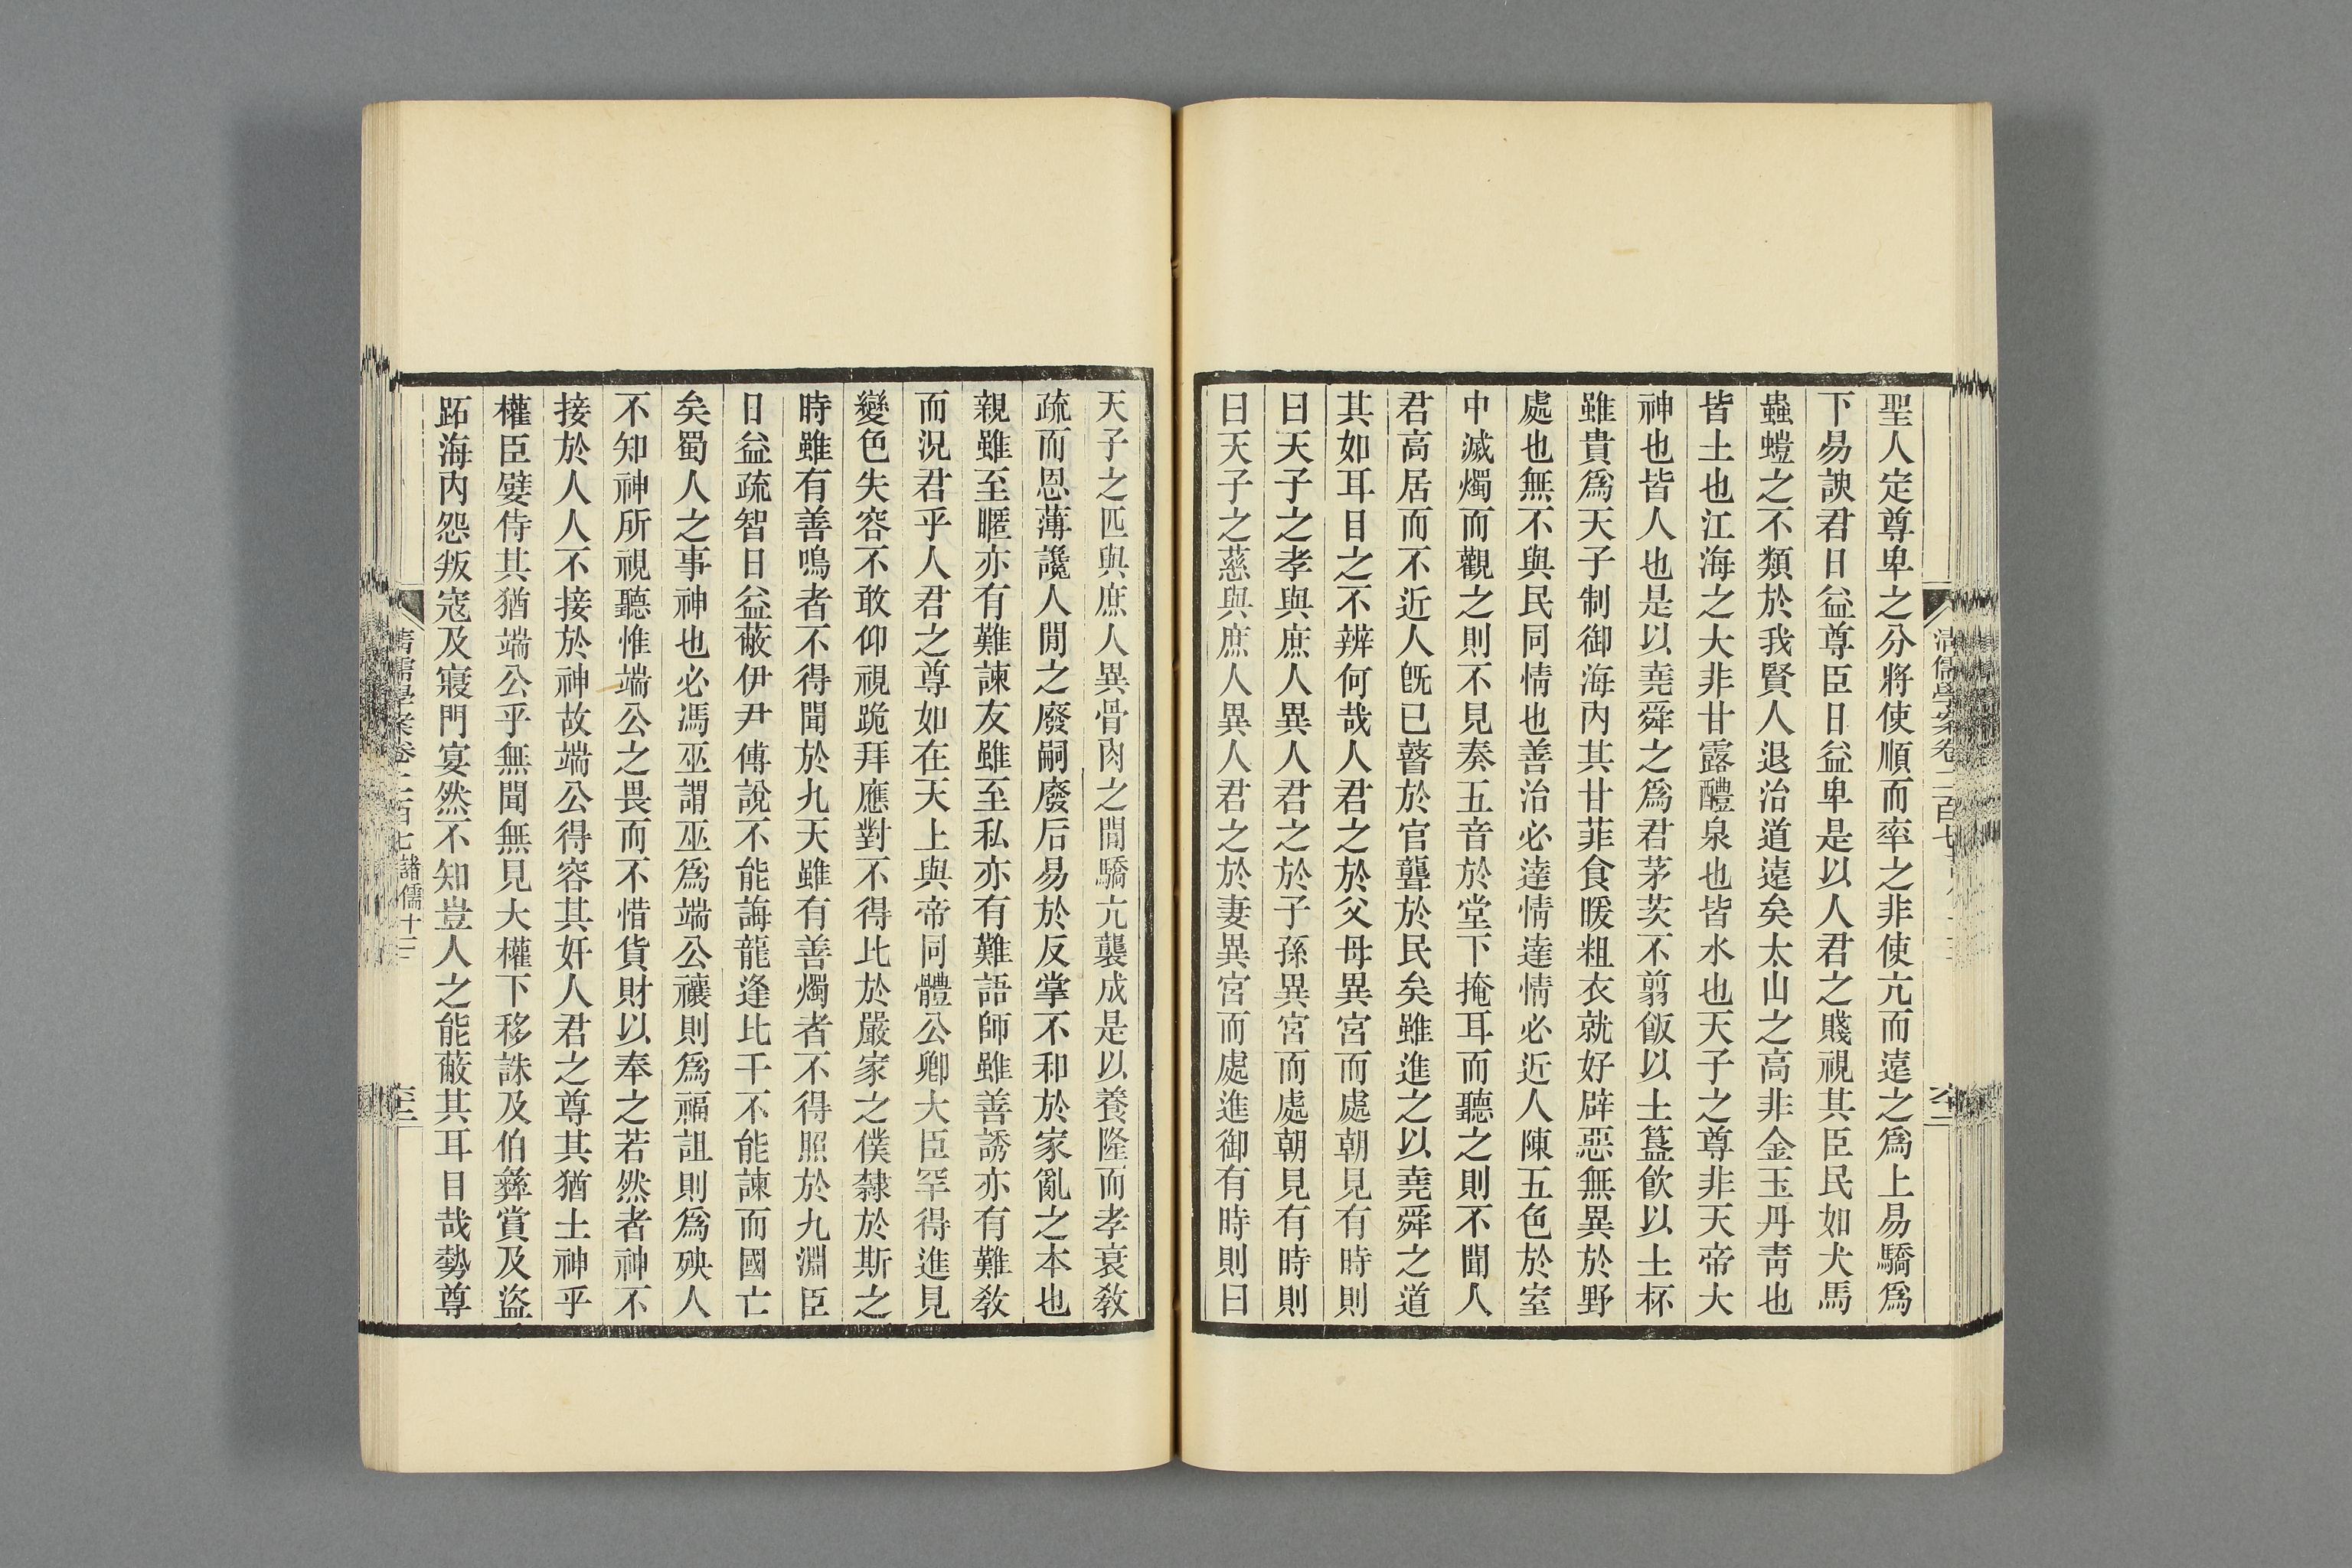 聖人定尊卑之分將使順而率之非使亢而遠之爲上易驕爲
下易諛君日益尊臣日益卑是以人君之賤視其臣民如犬馬
蟲螘之不類於我賢人退治道遠矣太山之高非金玉丹靑也
皆土也江海之大非甘露醴泉也皆水也天子之尊非天帝大
神也皆人也是以堯舜之爲君茅茨不翦飯以土簋飮以土杯
雖貴爲天子制御海內其甘菲食暖粗衣就好辟惡無異於野
處也無不與民同情也善治必達情達情必近人陳五色於室
中滅燭而觀之則不見奏五音於堂下掩耳而聽之則不聞人
君高居而不近人旣已瞽於官聾於民矣雖進之以堯舜之道
其如耳目之不辨何哉人君之於父母異宮而處朝見有時則
曰天子之孝與庶人異人君之於子孫異宮而處朝見有時則
曰天子之慈與庶人異人君之於妻異宮而處進御有時則曰
天子之匹與庶人異骨肉之閒驕亢襲成是以養隆而孝衰敎
疏而恩薄讒人閒之廢嗣廢后易於反掌不和於家亂之本也
親雖至暱亦有難諫友雖至私亦有難語師雖善誘亦有難敎
而況君乎人君之尊如在天上與帝同體公卿大臣罕得進見
變色失容不敢仰視跪拜應對不得比於嚴家之僕隸於斯之
時雖有善鳴者不得聞於九天雖有善燭者不得照於九淵臣
日益疏智日益蔽伊尹傅說不能誨龍逢比干不能諫而國亡
矣蜀人之事神也必馮巫謂巫爲端公禳則爲福詛則爲殃人
不知神所視聽惟端公之畏而不惜貨財以奉之若然者神不
接於人人不接於神故端公得容其奸人君之尊其猶土神乎
權臣嬖侍其猶端公乎無聞無見大權下移誅及伯彝賞及盜
跖海內怨叛寇及寢門宴然不知豈人之能蔽其耳目哉勢尊
清儒學案卷二百七 諸儒十三
六二